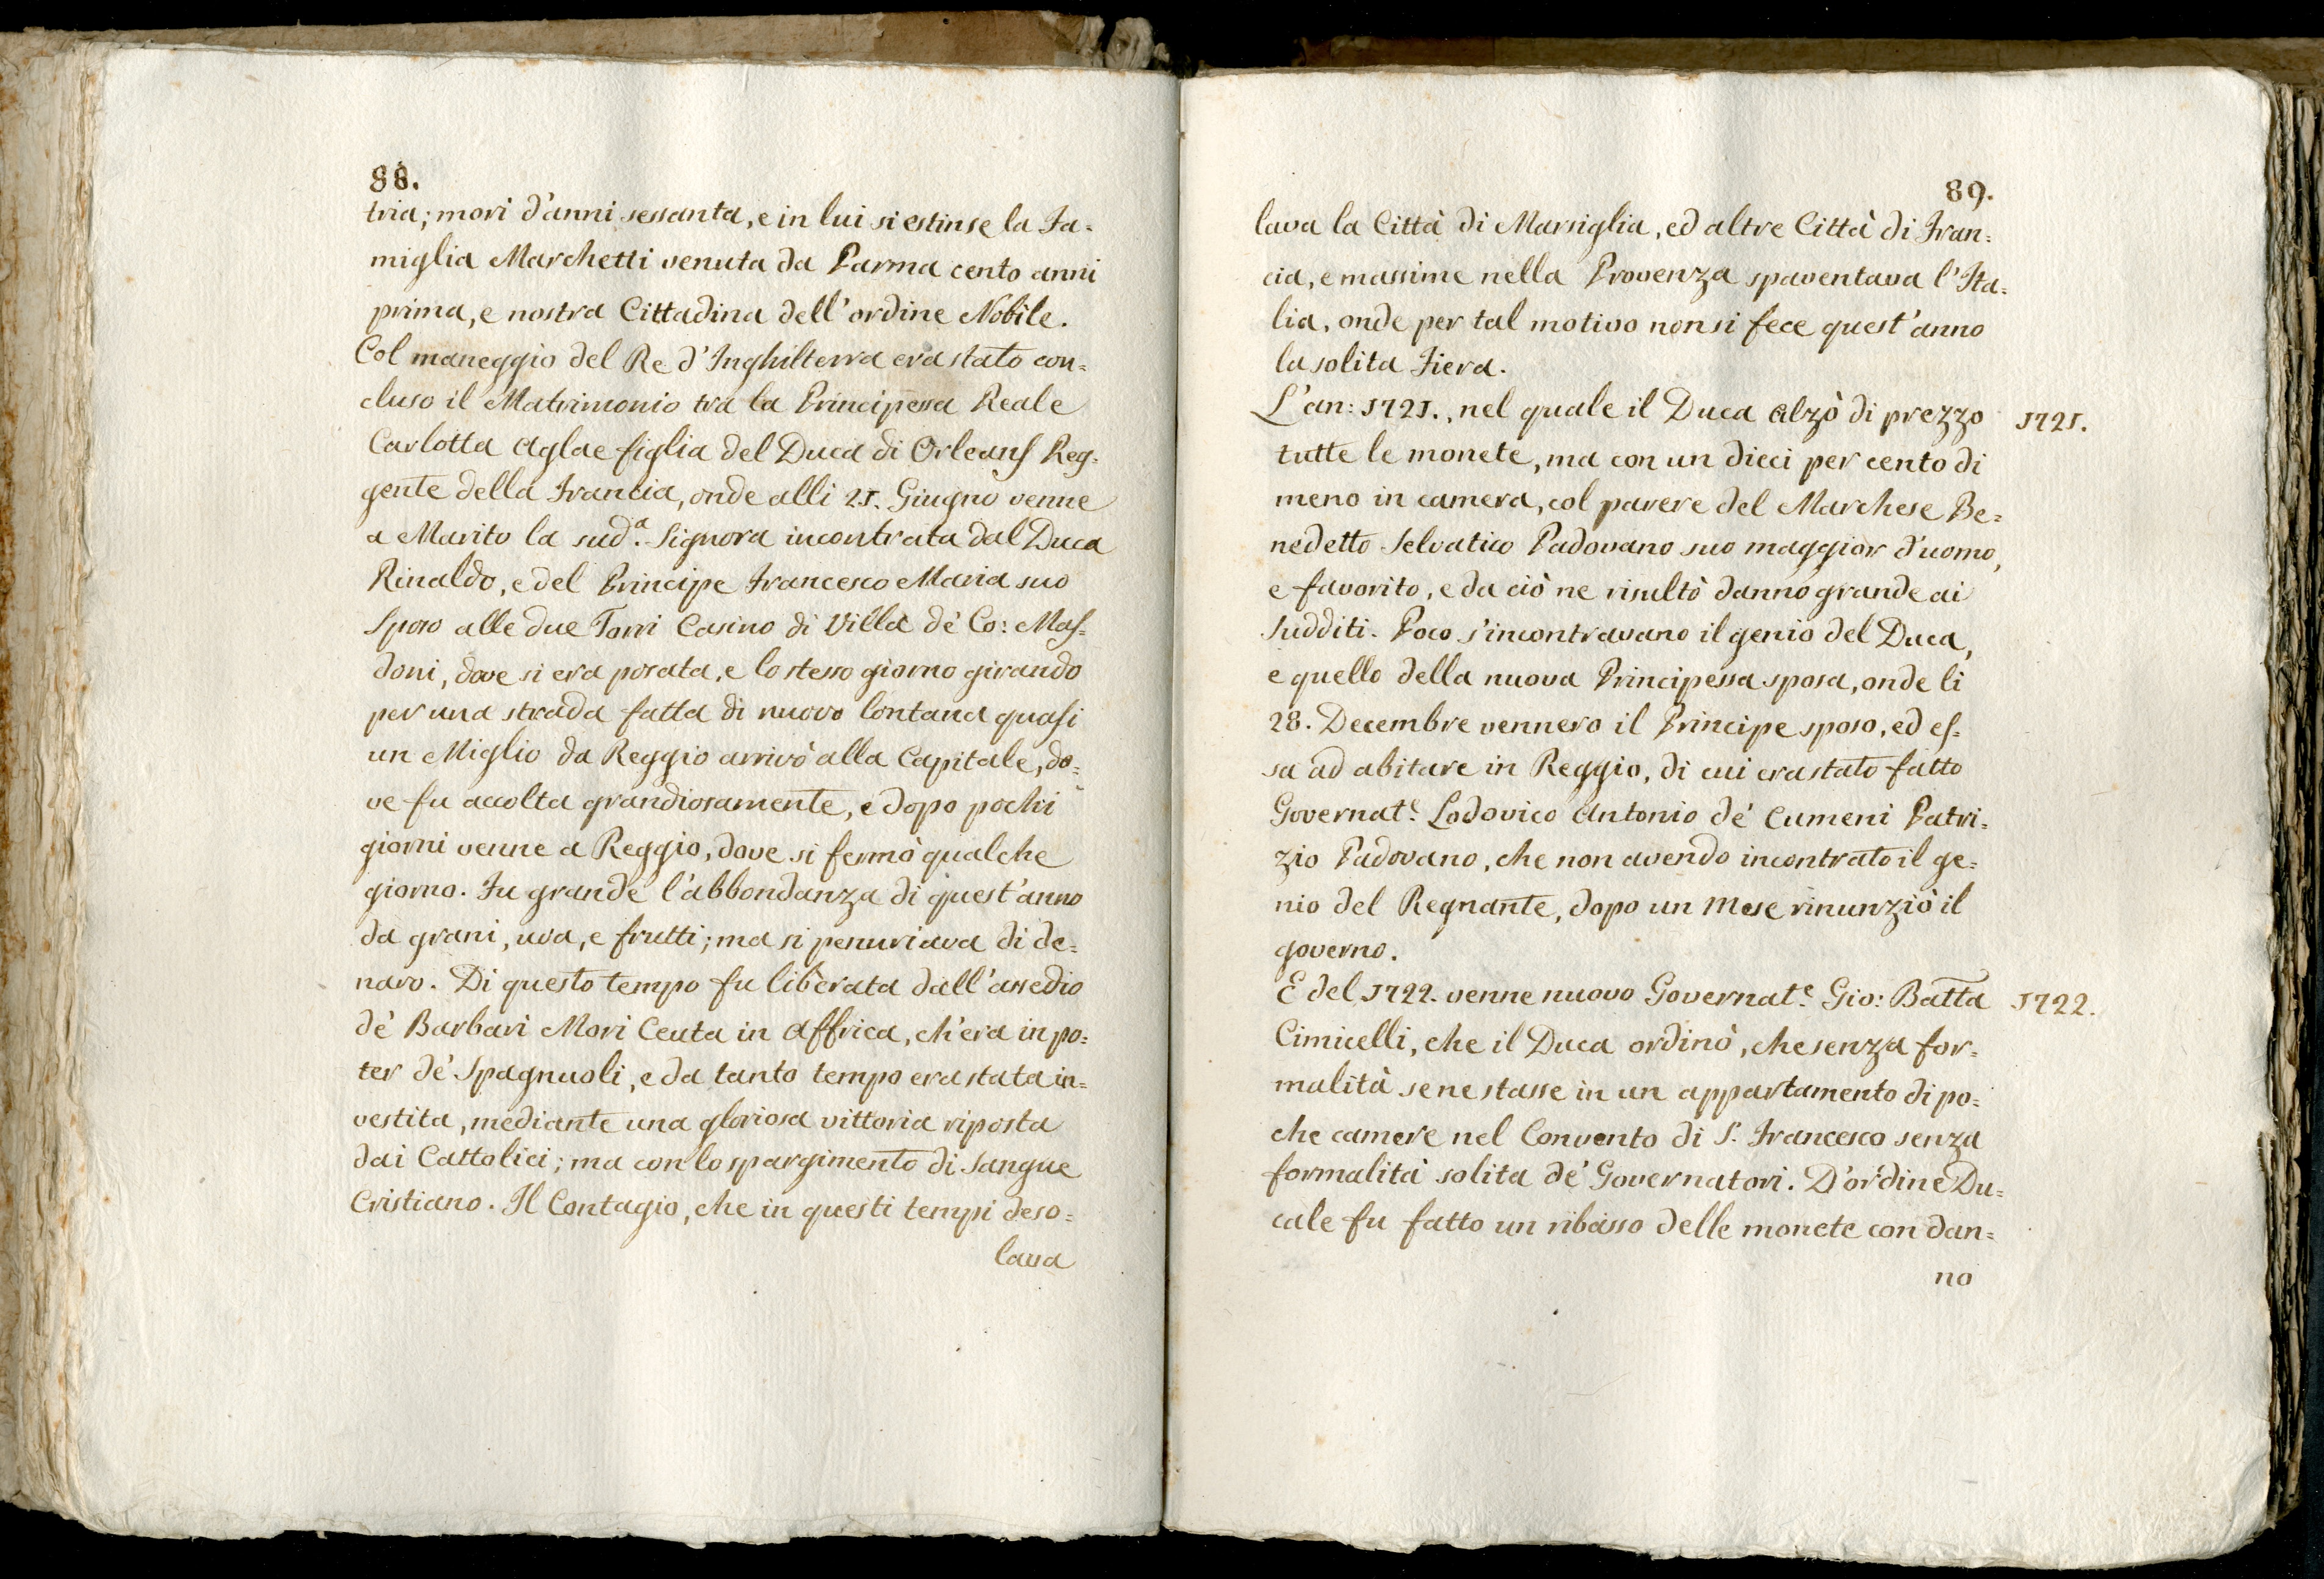 88.
tria; morì d'anni sessanta, e in lui si estinse la Fa=
miglia Marchetti venuta da Parma cento anni
prima, e nostra Cittadina dell'ordine Nobile.
Col maneggio del Re d'Inghilterra era stato con=
cluso il Matrimonio tra la Principessa Reale
Carlotta Aglae figlia del Duca di Orleans Reg=
gente della Francia, onde alli 21. Giugno venne
a Marito la sud.a Signora incontrata dal Duca
Rinaldo, e del Principe Francesco Maria suo
Sposo alle due Torri Casino di Villa de' Co: Mas=
doni, dove si era posata, e lo stesso giorno girando
per una strada fatta di nuovo lontana quasi
un Miglio da Reggio arrivò alla Capitale, do=
ve fu accolta grandiosamente, e dopo pochi
giorni venne a Reggio, dove si fermò qualche
giorno. Fu grande l'abbondanza di quest'anno
da grani, uva, e frutti; ma si penuriava di de=
naro. Di questo tempo fu liberata dall'assedio
de' Barbari Mori Ceuta in Affrica, ch'era in po=
ter de' Spagnuoli, e da tanto tempo era stata in=
vestita, mediante una gloriosa vittoria riposta
dai Cattolici; ma con lo spargimento di Sangue
Cristiano. Il Contagio, che in questi tempi deso=
lava
89.
lava la Città di Marsiglia, ed altre Città di Fran=
cia, e massime nella Provenza spaventava l'Ita=
lia, onde per tal motivo non si fece quest'anno
la solita Fiera.
L'an: 1721., nel quale il Duca alzò di prezzo 1721.
tutte le monete, ma con un dieci per cento di
meno in camera, col parere del Marchese Be=
nedetto Selvatico Padovano suo maggior d'uomo,
e favorito, e da ciò ne risultò danno grande ai
Sudditi. Poco s'incontravano il genio del Duca,
e quello della nuova Principessa sposa, onde li
28. Decembre vennero il Principe sposo, ed es=
sa ad abitare in Reggio, di cui era stato fatto
Governat.e Lodovico Antonio de' Cumeni Patri=
zio Padovano, che non avendo incontrato il ge=
nio del Regnante, dopo un Mese rinunziò il
governo.
E del 1722. venne nuovo Governat.e Gio: Batta 1722.
Cimicelli, che il Duca ordinò, che senza for=
malità se ne stasse in un appartamento di po=
che camere nel Convento di S. Francesco senza
formalità solita de' Governatori. D'ordine Du=
cale fu fatto un ribasso delle monete con dan=
no